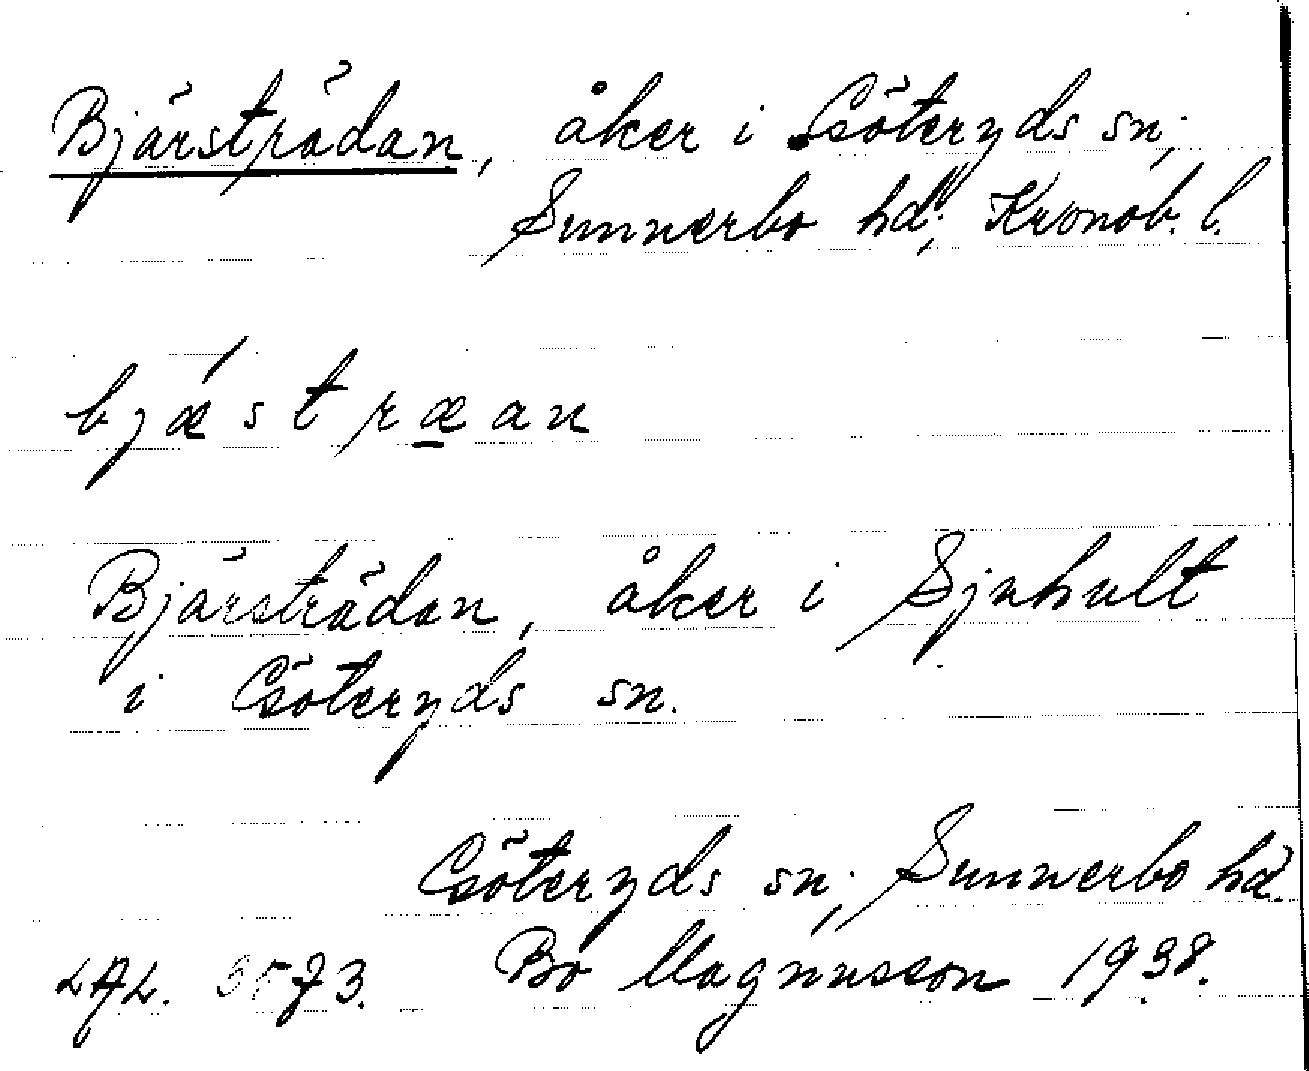 Bjärsträdan, åker i Göteryds sn;
Sunnerbo hd; Kronob. l.
bjæstræan
Bjärsträdan, åker i Sjuhult
i Göteryds sn.
Göteryds sn; Sunnerbo hd.
LAL. 3573. Bo Magnusson 1938.